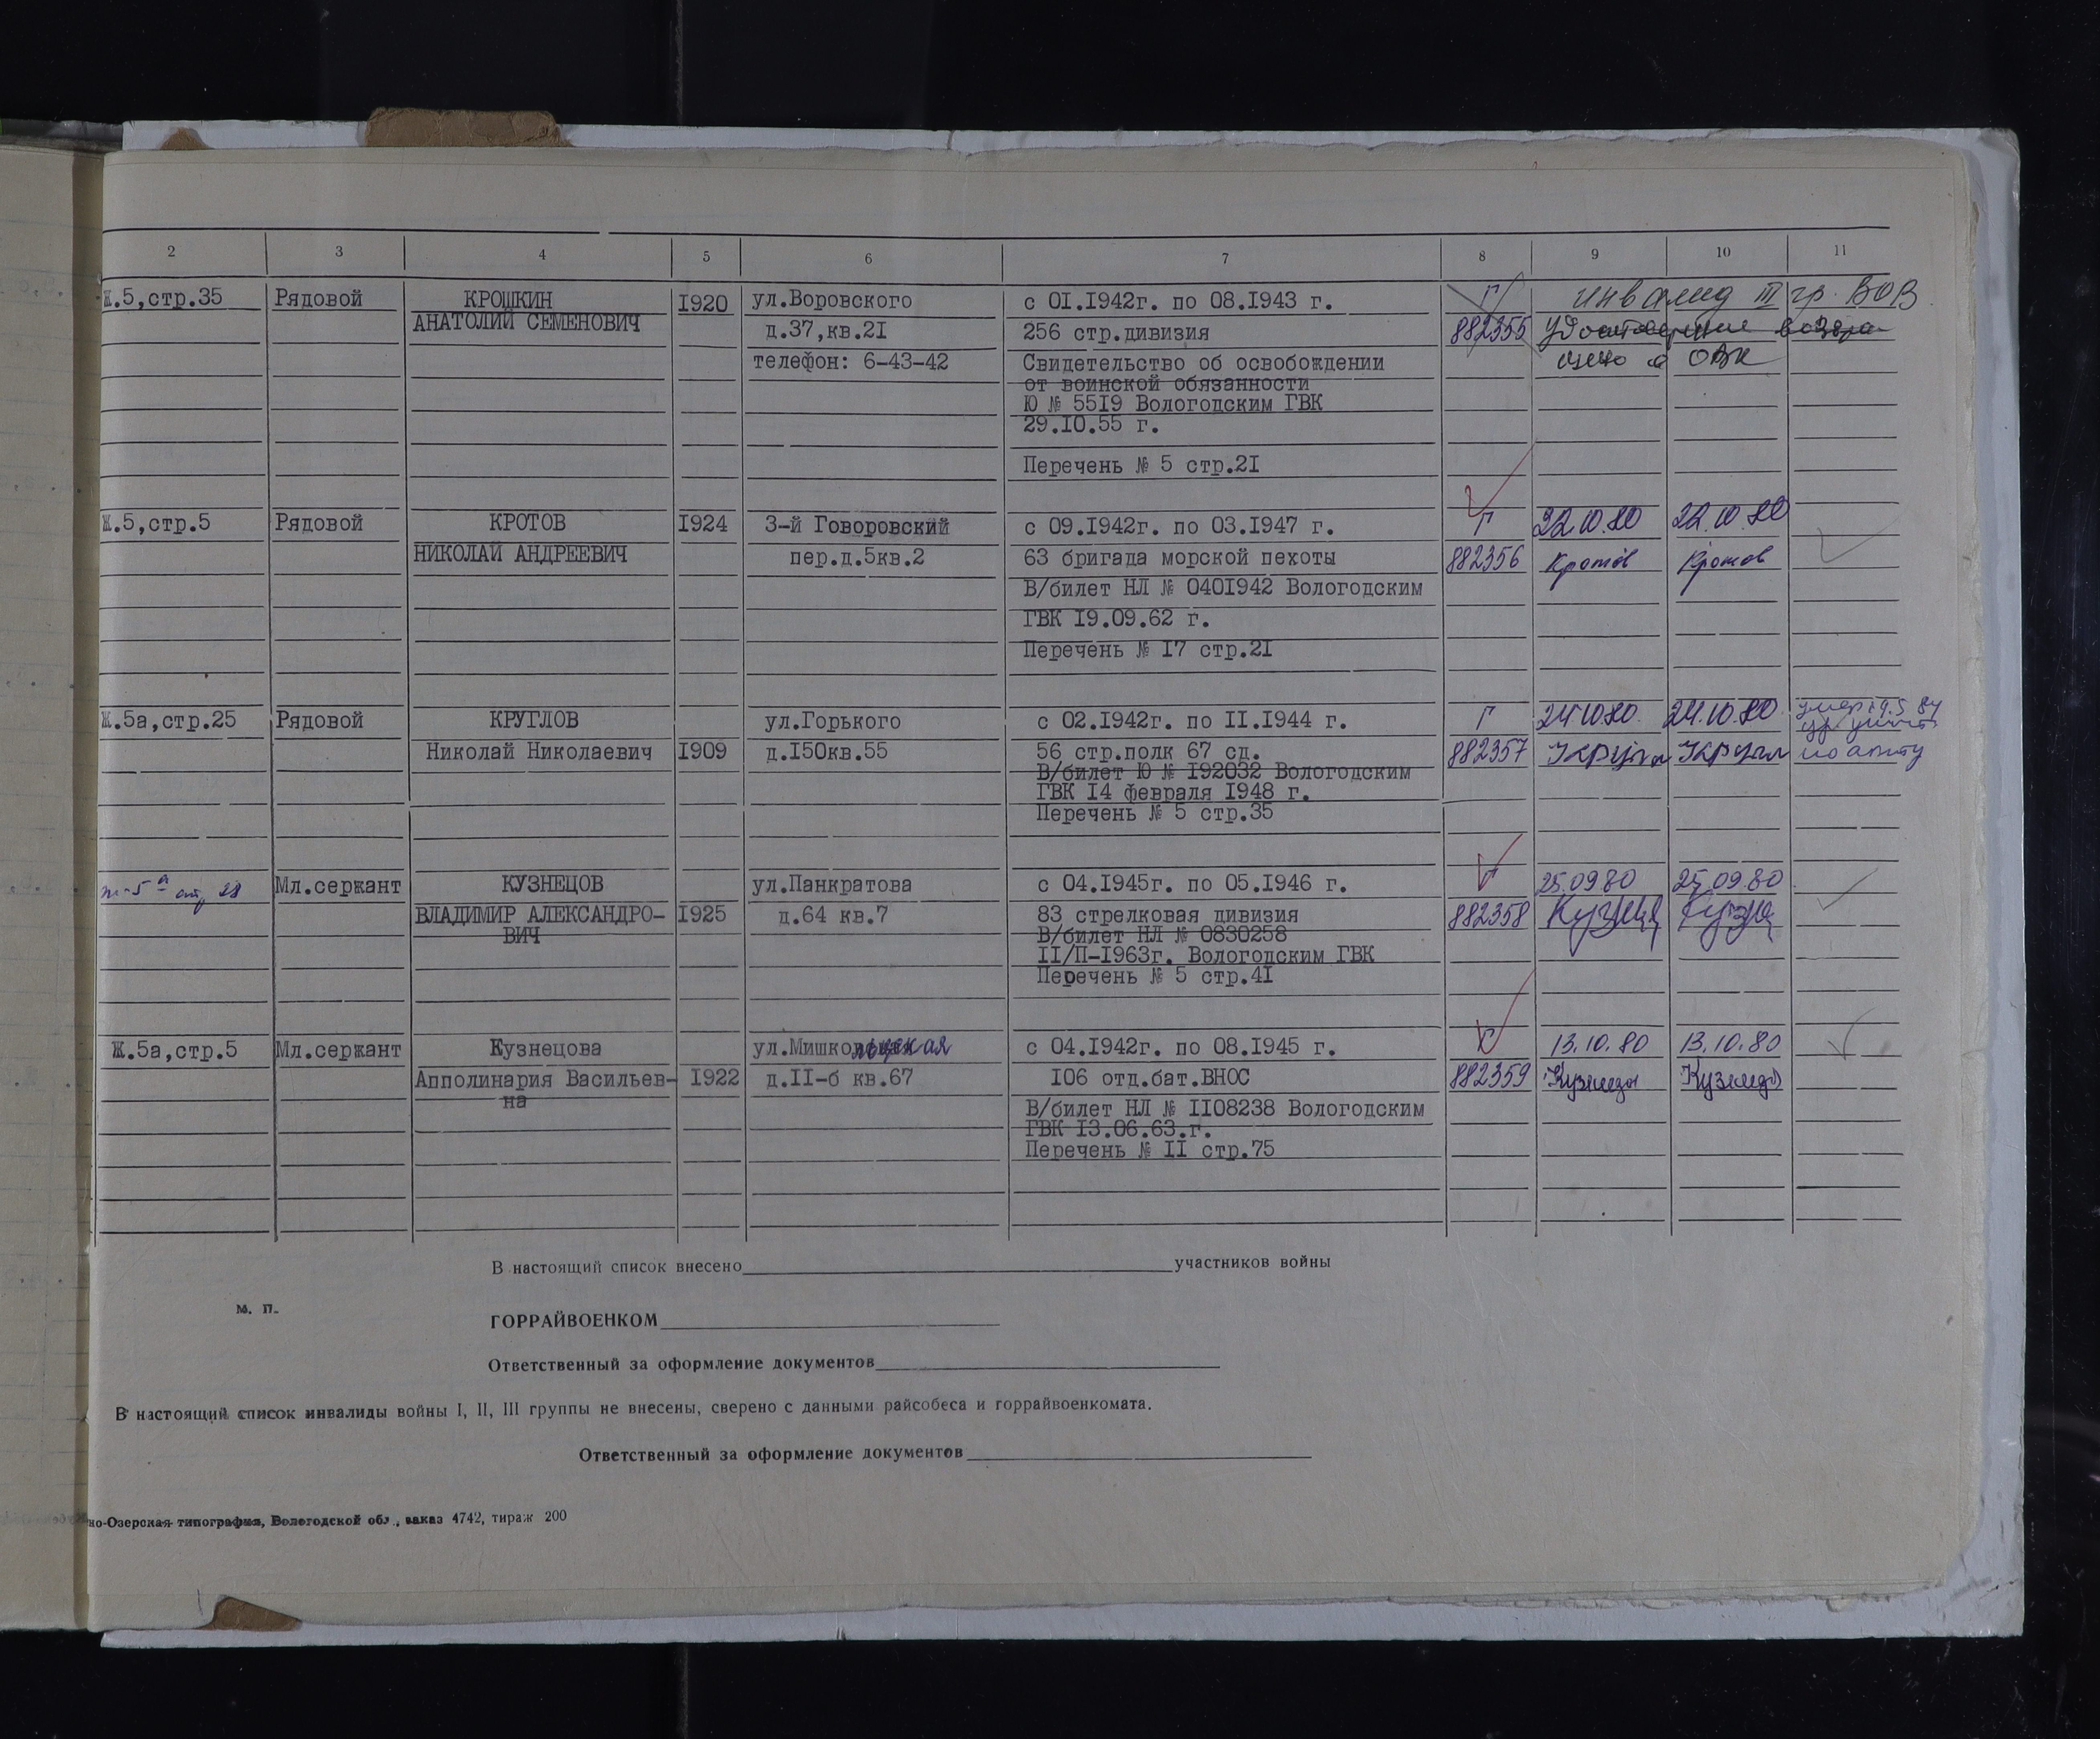 2 3 4 5 6 7 8 9 10 11
Ж.5,стр.35 Рядовой КРОШКИН I920 ул.Воровского с 0I.I942г. по 08.I943 г. Г инвалид III гр. ВОВ
АНАТОЛИЙ СЕМЕНОВИЧ д.37,кв.2I 256 стр.дивизия 882355 Удостоверение возвра-
телефон: 6-43-42 Свидетельство об освобождении щено в ОВК
от воинской обязанности
Ю № 55I9 Вологодским ГВК
29.I0.55 г.
Перечень № 5 стр.2I
Ж.5,стр.5 Рядовой КРОТОВ I924 3-й Говоровский с 09.I942г. по 03.I947 г. Г 22.10.80 22.10.80
НИКОЛАЙ АНДРЕЕВИЧ пер.д.5кв.2 63 бригада морской пехоты 882356 Кротов Кротов
В/билет НЛ № 040I942 Вологодским
ГВК I9.09.62 г.
Перечень № I7 стр.2I
Ж.5а,стр.25 Рядовой КРУГЛОВ ул.Горького с 02.I942г. по II.I944 г. Г 24.10.80. 24.10.80 умер 19.5.84
Николай Николаевич I909 д.I50кв.55 56 стр.полк 67 сд. 882357 Кругл Кругл по акту
В/билет Ю № I92032 Вологодским
ГВК I4 февраля I948 г.
Перечень № 5 стр.35
ж-5а стр 28 Мл.сержант КУЗНЕЦОВ ул.Панкратова с 04.I945г. по 05.I946 г. Г 25.09.80 25.09.80
ВЛАДИМИР АЛЕКСАНДРО- I925 д.64 кв.7 83 стрелковая дивизия 882358 Кузнец Кузнец
ВИЧ В/билет НЛ № 0830258
II/П-I963г. Вологодским ГВК
Перечень № 5 стр.4I
Ж.5а,стр.5 Мл.сержант Кузнецова ул.Мишкольцская с 04.I942г. по 08.I945 г. Г 13.10.80 13.10.80
Апполинария Васильев- I922 д.II-б кв.67 I06 отд.бат.ВНОС 882359 Кузнецо Кузнецо
на
В/билет НЛ № II08238 Вологодским
ГВК I3.06.63.г.
Перечень № II стр.75
В настоящий список внесено участников войны
м. п.
ГОРРАЙВОЕНКОМ
Ответственный за оформление документов
В настоящий список инвалиды войны I, II, III группы не внесены, сверено с данными райсобеса и горрайвоенкомата.
Ответственный за оформление документов
но-Озерская типография, Вологодской обл., заказ 4742, тираж 200